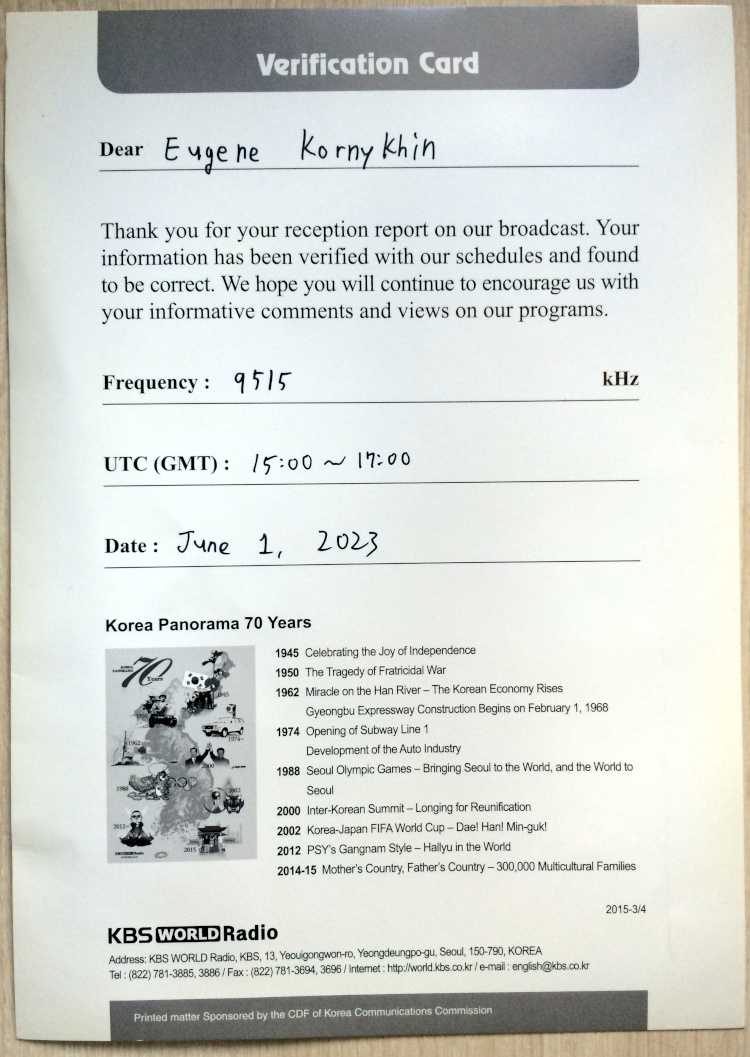 Verification Card
Dear Eugene Kornykhin
Thank you for your reception report on our broadcast. Your
information has been verified with our schedules and found
to be correct. We hope you will continue to encourage us with
your informative comments and views on our programs.
Frequency : 9515 kHz
UTC (GMT) : 15:00 ~ 17:00
Date : June 1, 2023
Korea Panorama 70 Years
70 Years
1945
1962
1974
2000
1988
2002
2012
2015
1945 Celebrating the Joy of Independence
1950 The Tragedy of Fratricidal War
1962 Miracle on the Han River – The Korean Economy Rises
Gyeongbu Expressway Construction Begins on February 1, 1968
1974 Opening of Subway Line 1
Development of the Auto Industry
1988 Seoul Olympic Games – Bringing Seoul to the World, and the World to
Seoul
2000 Inter-Korean Summit – Longing for Reunification
2002 Korea-Japan FIFA World Cup – Dae! Han! Min-guk!
2012 PSY's Gangnam Style – Hallyu in the World
2014-15 Mother's Country, Father's Country – 300,000 Multicultural Families
2015-3/4
KBS WORLD Radio
Address: KBS WORLD Radio, KBS, 13, Yeouigongwon-ro, Yeongdeungpo-gu, Seoul, 150-790, KOREA
Tel : (822) 781-3885, 3886 / Fax : (822) 781-3694, 3696 / Internet : http://world.kbs.co.kr / e-mail : english@kbs.co.kr
Printed matter Sponsored by the CDF of Korea Communications Commission